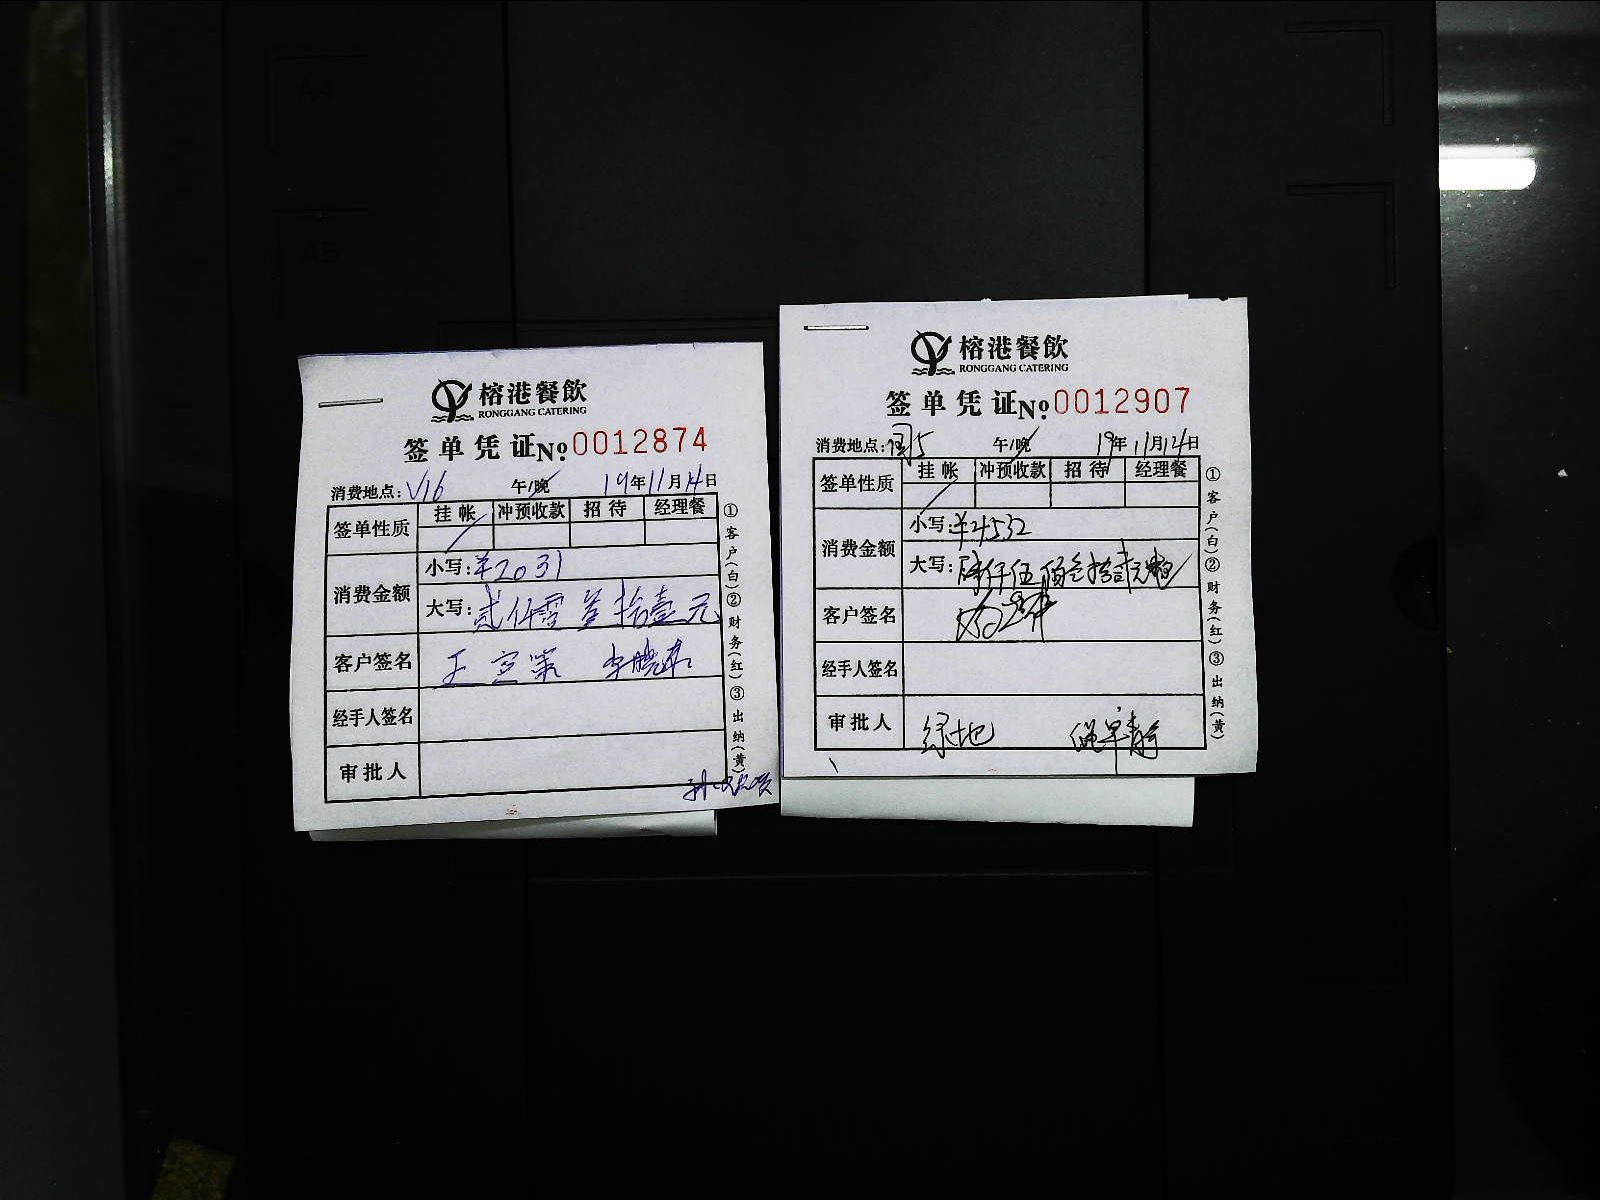 A4
A5
榕港餐飲
RONGGANG CATERING
签单凭证№0012874
消费地点:V16 午/晚 19年11月14日
签单性质 挂帐 冲预收款 招待 经理餐
消费金额 小写:¥2031
大写:贰仟零叁拾壹元
客户签名
经手人签名
审批人
①客户(白)②财务(红)③出纳(黄)
榕港餐飲
RONGGANG CATERING
签单凭证№0012907
消费地点: 午/晚 19年11月14日
签单性质 挂帐 冲预收款 招待 经理餐
消费金额 小写:¥4532
大写:肆仟伍佰叁拾贰元整
客户签名
经手人签名
审批人 绿地
①客户(白)②财务(红)③出纳(黄)